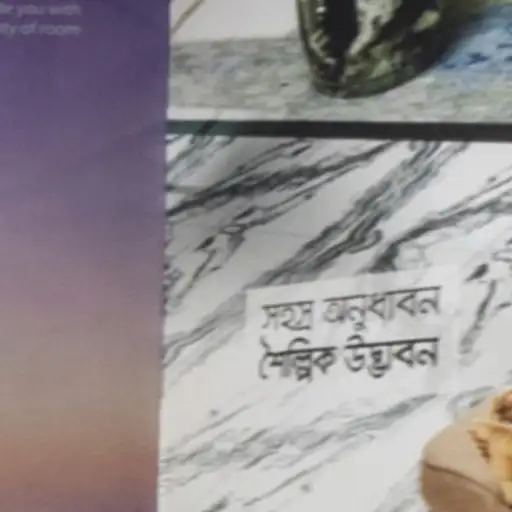 for you with
ity of room
সহস্র অনুধাবন
শৈল্পিক উদ্ভাবন